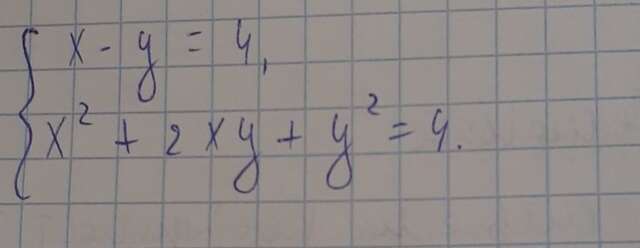 x - y = 4,
x² + 2xy + y² = 4.